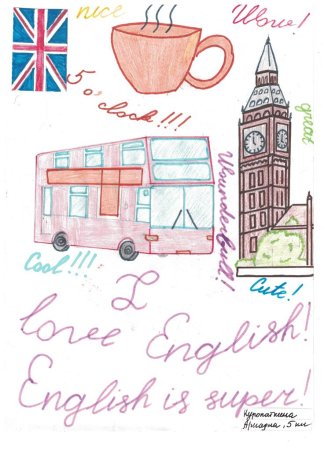 nice
5 o'clock!!!
great
Cool!!!
Cute!
I
love English!
English is super!
Куропаткина
Ариадна, 5 кл